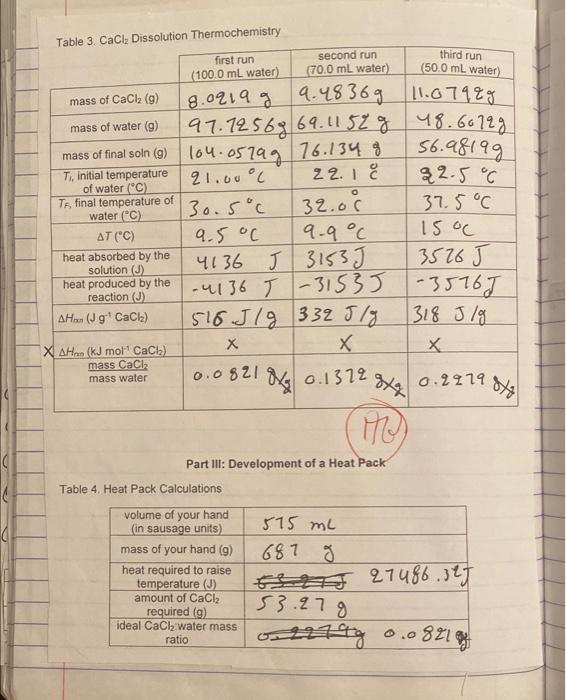 Table 3. CaCl₂ Dissolution Thermochemistry
first run (100.0 mL water) second run (70.0 mL water) third run (50.0 mL water)
mass of CaCl₂ (g) 8.0219 g 9.4836 g 11.0792 g
mass of water (g) 97.7256 g 69.1152 g 48.6072 g
mass of final soln (g) 104.0579 g 76.134 g 56.9819 g
Tᵢ, initial temperature of water (°C) 21.00 °C 22.1 °C 22.5 °C
T_F, final temperature of water (°C) 30.5 °C 32.0 °C 37.5 °C
ΔT (°C) 9.5 °C 9.9 °C 15 °C
heat absorbed by the solution (J) 4136 J 3153 J 3576 J
heat produced by the reaction (J) -4136 J -3153 J -3576 J
ΔHrxn (J g⁻¹ CaCl₂) 516 J/g 332 J/g 318 J/g
X ΔHrxn (kJ mol⁻¹ CaCl₂) X X X
mass CaCl₂
mass water 0.0821 g/g 0.1372 g/g 0.2279 g/g
Part III: Development of a Heat Pack
Table 4. Heat Pack Calculations
volume of your hand (in sausage units) 575 mL
mass of your hand (g) 687 g
heat required to raise temperature (J) 27486.32 J
amount of CaCl₂ required (g) 53.27 g
ideal CaCl₂:water mass ratio 0.2279 g 0.0821